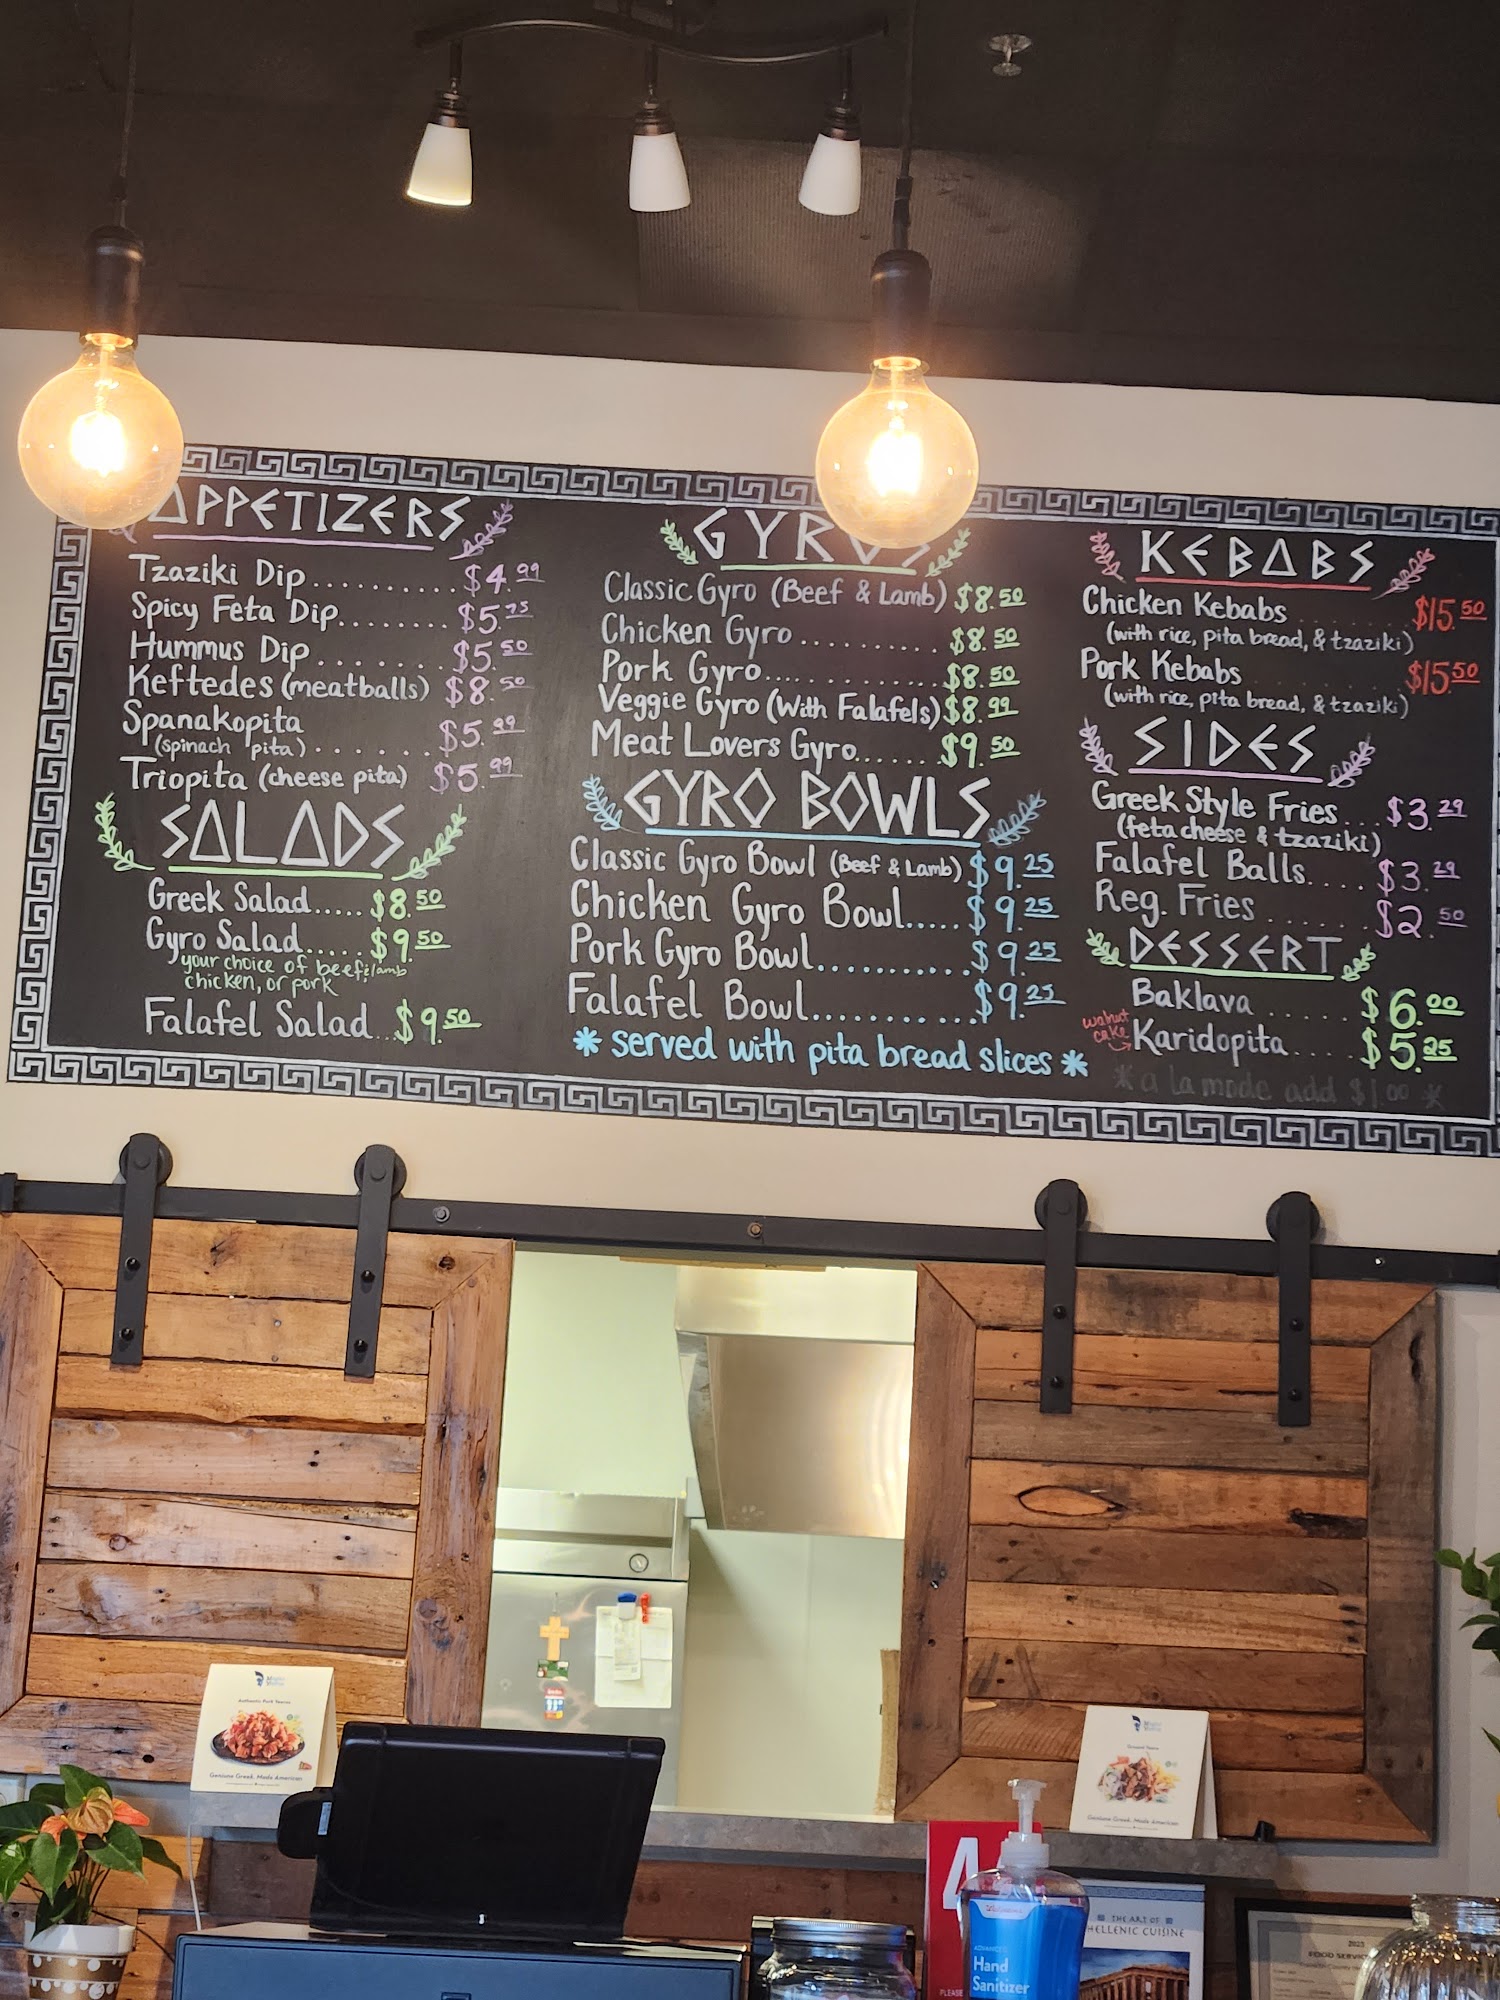 APPETIZERS
Tzaziki Dip....... $4.99
Spicy Feta Dip........ $5.75
Hummus Dip....... $5.50
Keftedes (meatballs) $8.50
Spanakopita
(spinach pita)....... $5.99
Triopita (cheese pita) $5.99
SALADS
Greek Salad..... $8.50
Gyro Salad..... $9.50
your choice of beef & lamb
chicken, or pork
Falafel Salad... $9.50
GYROS
Classic Gyro (Beef & Lamb) $8.50
Chicken Gyro.......... $8.50
Pork Gyro............. $8.50
Veggie Gyro (With Falafels) $8.99
Meat Lovers Gyro...... $9.50
GYRO BOWLS
Classic Gyro Bowl (Beef & Lamb) $9.25
Chicken Gyro Bowl..... $9.25
Pork Gyro Bowl........... $9.25
Falafel Bowl........... $9.25
* served with pita bread slices *
KEBABS
Chicken Kebabs ........ $15.50
(with rice, pita bread, & tzaziki)
Pork Kebabs ........ $15.50
(with rice, pita bread, & tzaziki)
SIDES
Greek Style Fries... $3.29
(feta cheese & tzaziki)
Falafel Balls.... $3.29
Reg. Fries ...... $2.50
DESSERT
Baklava ...... $6.00
walnut
cake
Karidopita.... $5.25
* a la mode add $1.00 *
Authentic Pork Yeeros
Genuine Greek. Made American
Genuine Greek. Made American
4
PLEASE
ADVANCED
Hand
Sanitizer
THE ART OF
HELLENIC CUISINE
2023
FOOD SERVICE